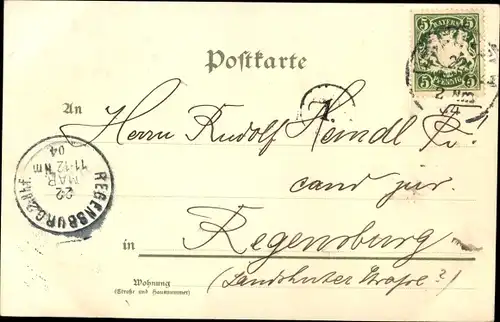 BAYERN
5 5
5 PFENNIG 5
2 Nm
04
Postkarte
An
Herrn Rudolf Heindl
cand jur.
REGENSBURG 2. Bhf.
22
MAR
11-12 Nm
04
in Regensburg
(Landshuter Straße?)
Wohnung
(Straße und Hausnummer)